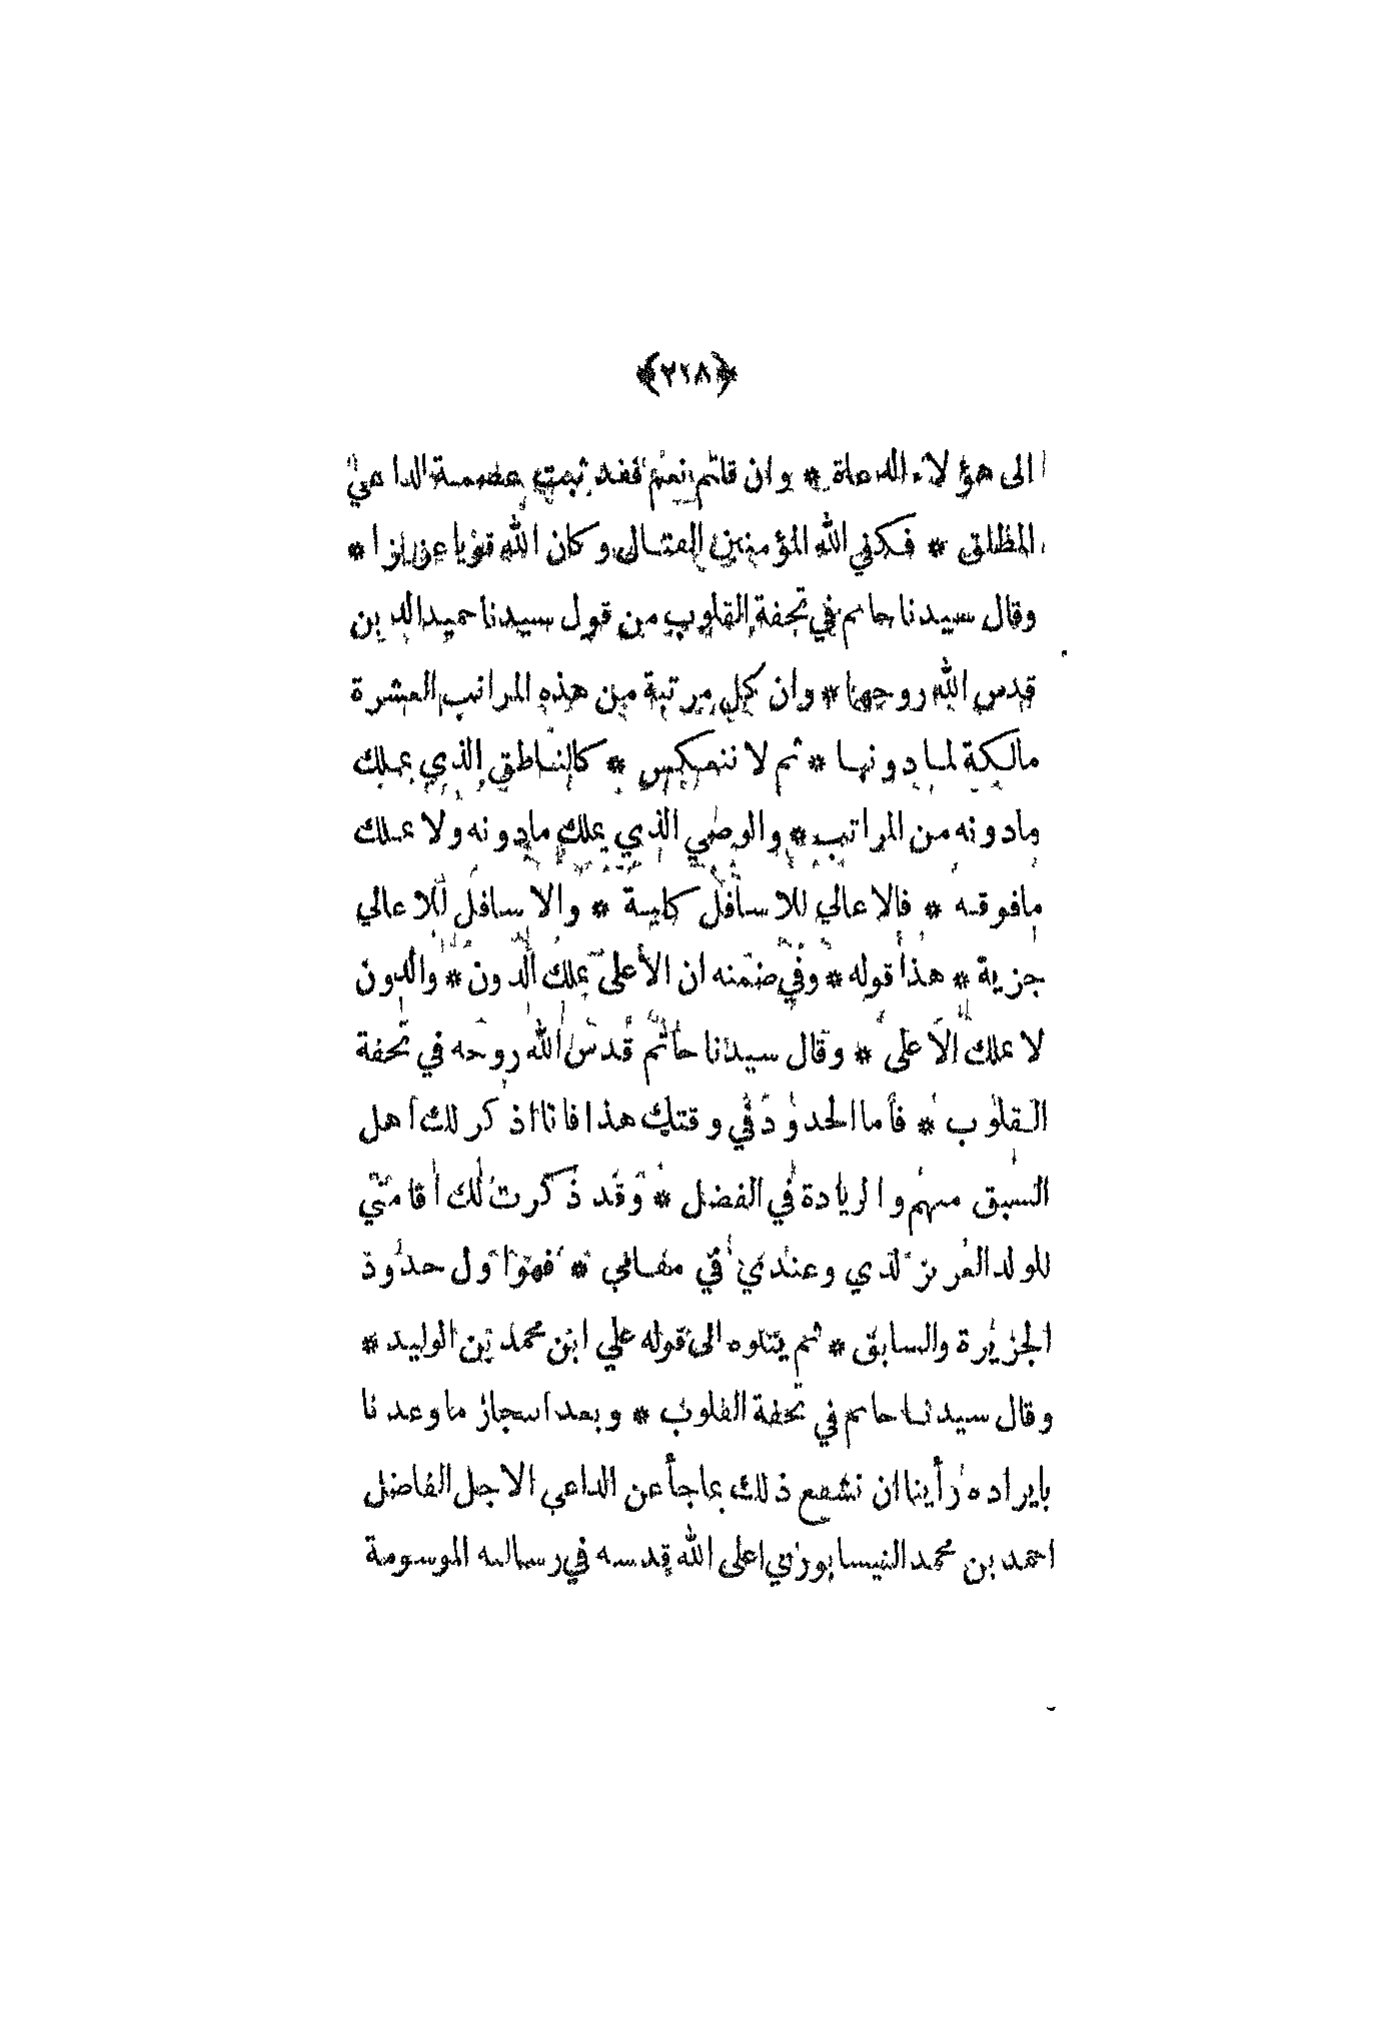 ﴿٢٢٨﴾
الى هؤلاء الدعاة * وان قلتم نعم فقد ثبت عصمة الداعي
المطلق * فكفي الله المؤمنين القتال وكان الله قويا عزيزا *
وقال سيدنا حاتم في تحفة القلوب من قول سيدنا حميد الدين
قدس الله روحهما * وان كل مرتبة من هذه المراتب العشرة
مالكة لما دونها * ثم لا تنعكس * كالناطق الذي يملك
مادونه من المراتب * والوصي الذي يملك مادونه ولا يملك
مافوقه * فالاعالي للاسافل كلية * والاسافل للاعالي
جزية * هذا قوله * وفي ضمنه ان الأعلى يملك الدون * والدون
لا يملك الأعلى * وقال سيدنا حاتم قدس الله روحه في تحفة
القلوب * فأما الحدود في وقتك هذا فانا اذكر لك اهل
السبق منهم والزيادة في الفضل * وقد ذكرت لك اقامتي
للولد العزيز لدي وعندي في مقامي * فهو اول حدود
الجزيرة والسابق * ثم يتلوه الى قوله علي ابن محمد بن الوليد *
وقال سيدنا حاتم في تحفة القلوب * وبعد انجاز ماوعدنا
بايراده رأينا ان نشفع ذلك بماجأ عن الداعي الاجل الفاضل
احمد بن محمد النيسابوري اعلى الله قدسه في رسالته الموسومة